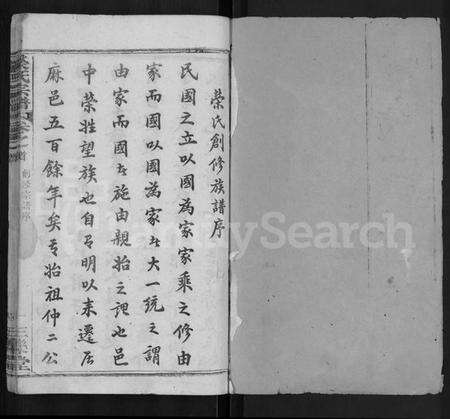 榮氏創修族譜序
民國之立以國為家家乘之修由
家而國以國為家者大一統之謂
由家而國者施由親始之謂也邑
中榮姓望族也自有明以來遷居
麻邑五百餘年矣考始祖仲二公
榮氏宗譜
卷之首
三樂堂
FamilySearch